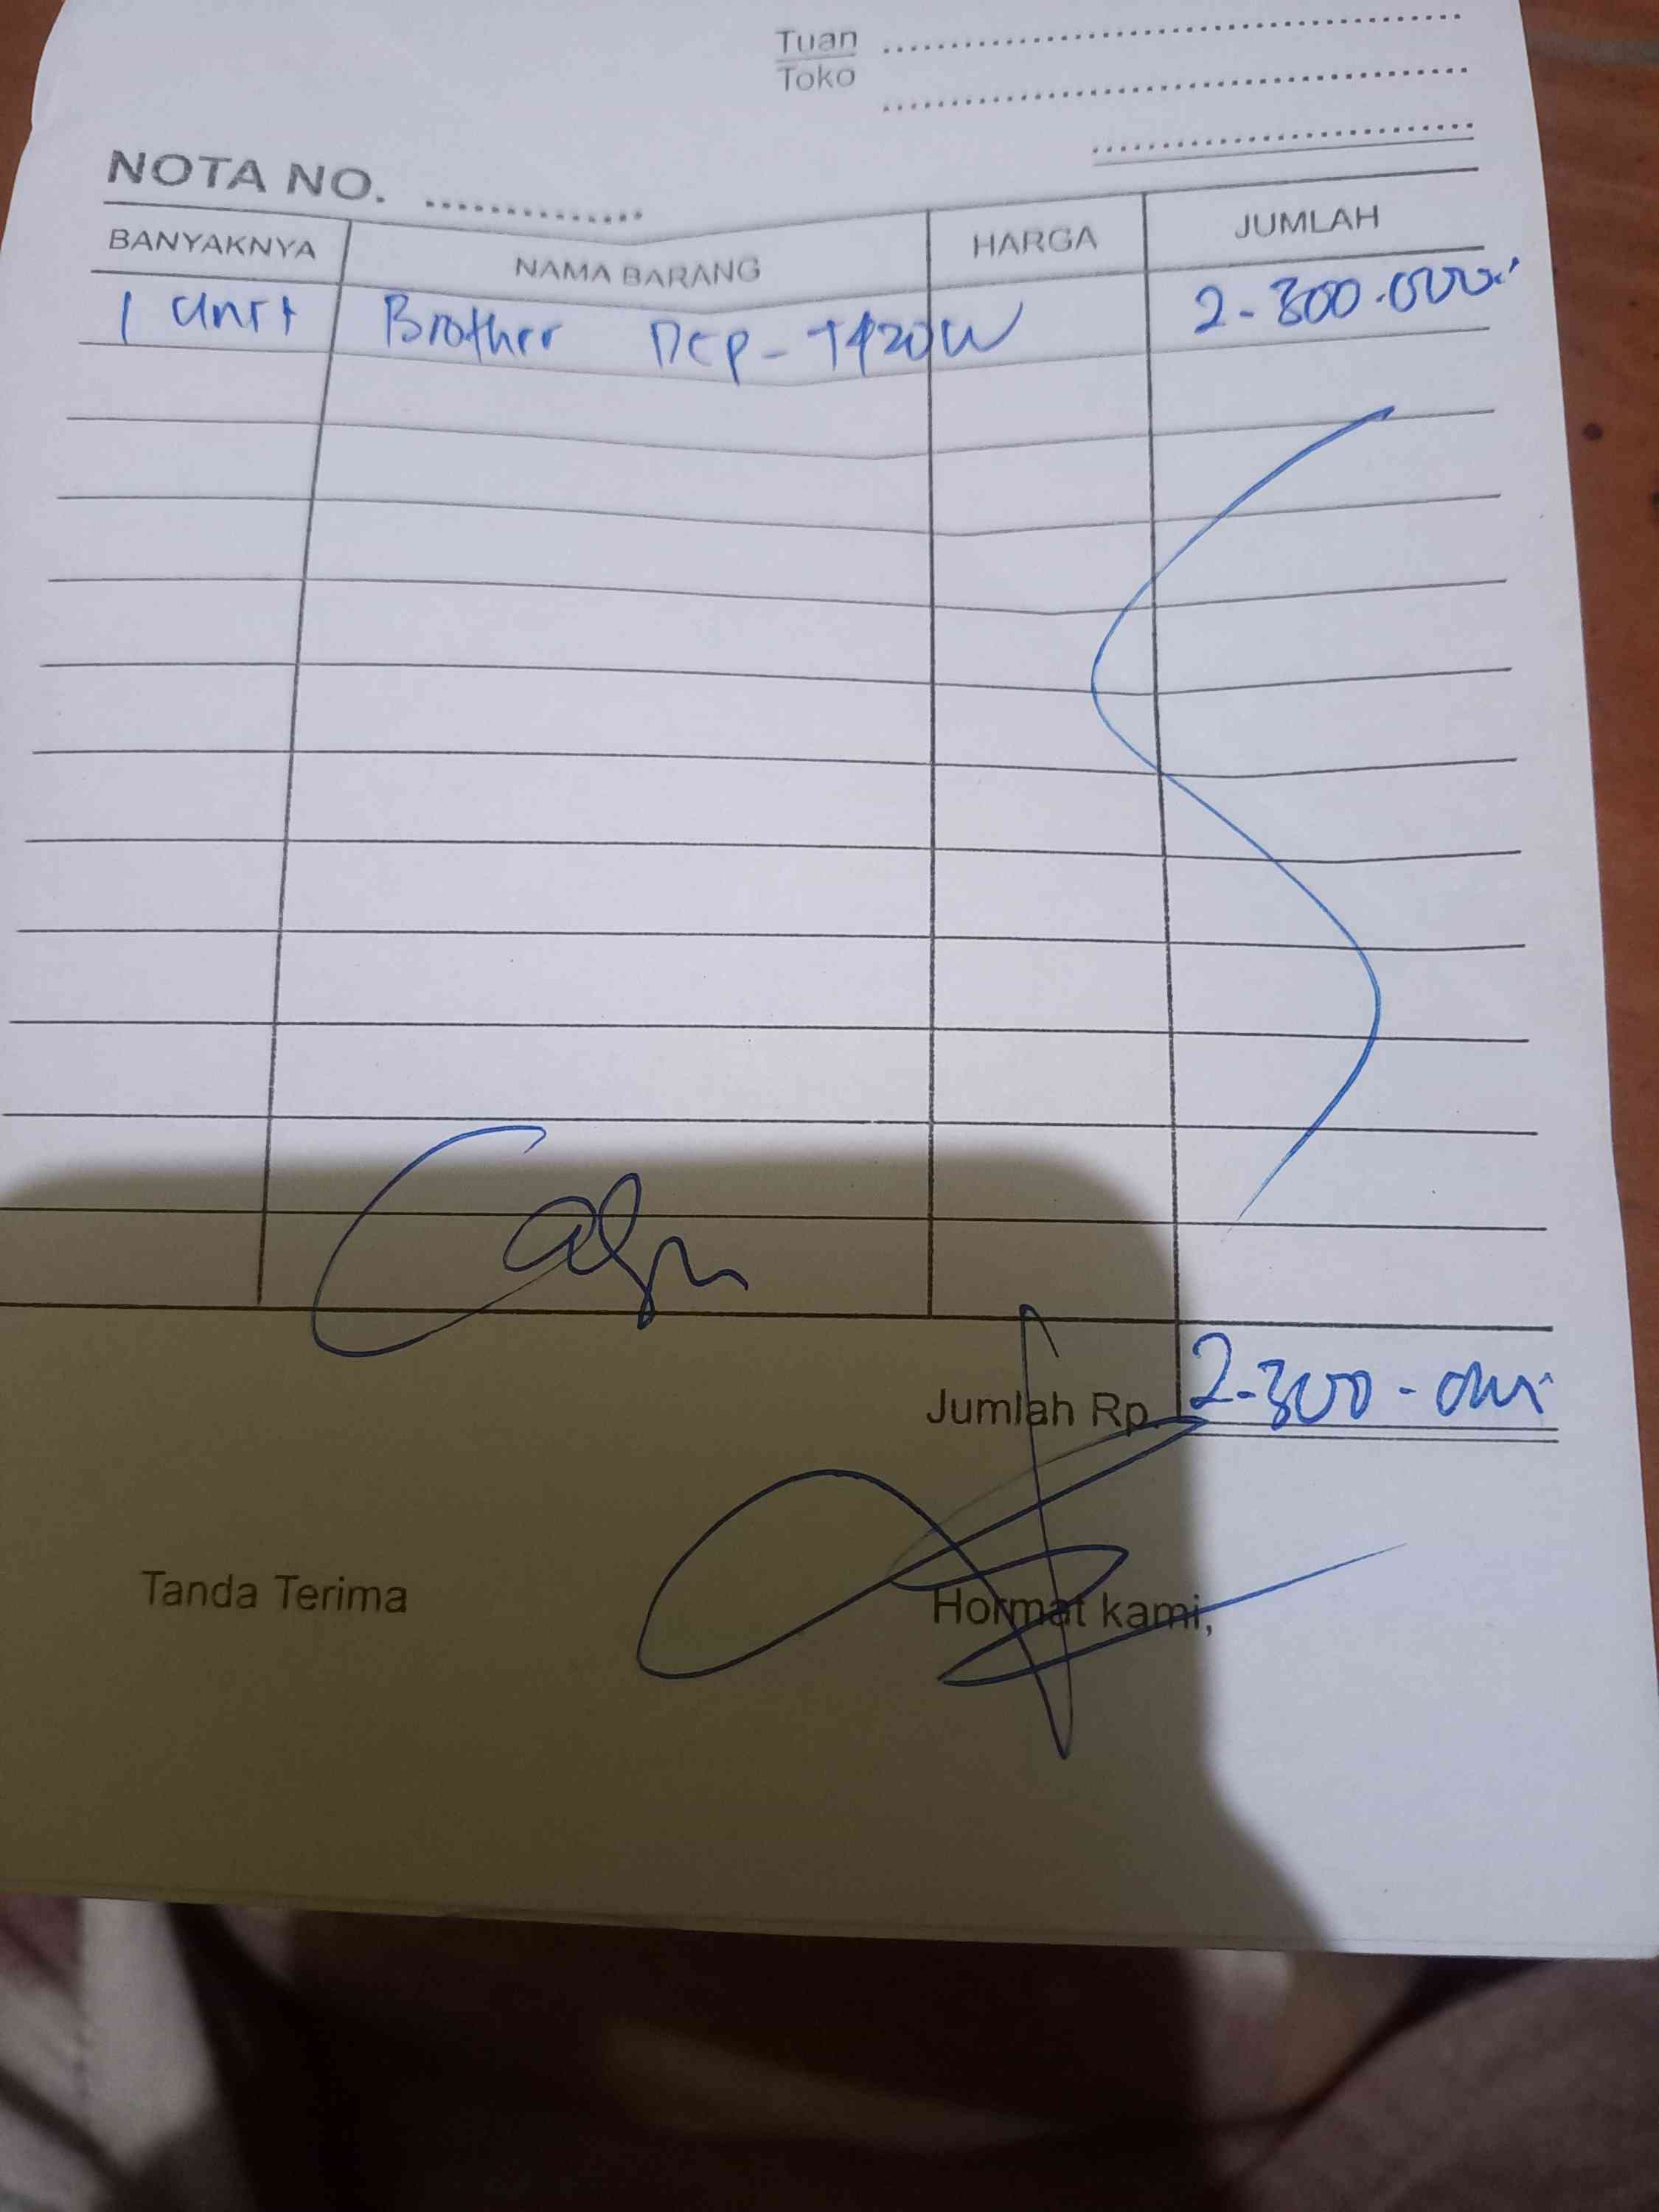 Tuan
Toko
NOTA NO.
BANYAKNYA NAMA BARANG HARGA JUMLAH
1 Unit Brother DCP-T420W 2-300.000
Jumlah Rp. 2-300-000
Tanda Terima Hormat kami,